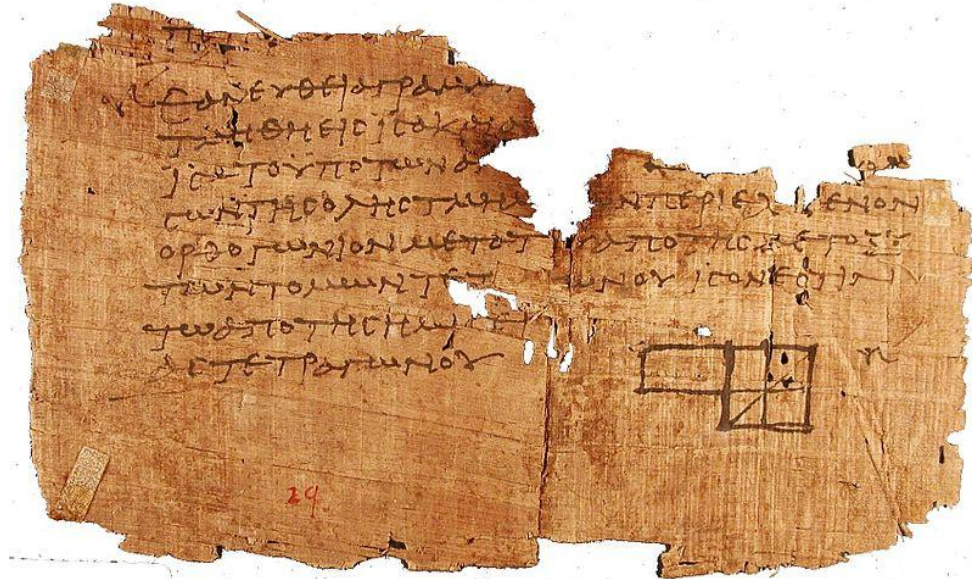 ΕΑΝ ΕΥΘΕΙΑ ΓΡΑΜΜ
ΤΜΗΘΗ ΕΙϹ ΙϹΑ ΚΑΙ Α
ΙϹΑ ΤΟ ΥΠΟ ΤΩΝ Α
ϹΩΝ ΤΗϹ ΟΛΗϹ ΤΜΗΜ ΩΝ ΠΕΡΙΕΧ ΜΕΝΟΝ
ΟΡΘΟΓΩΝΙΟΝ ΜΕΤΑ Τ ΑΠΟ ΤΗϹ ΜΕΤΟΞΥ
ΤΩΝ ΤΟΜΩΝ ΤΕΤ ΩΝΟΥ ΙϹΟΝ ΕϹΤΙΝ
ΤΩ ΑΠΟ ΤΗϹ ΗΜΙϹΕΙ
ΑϹ ΤΕΤΡΑΓΩΝΟΥ
29